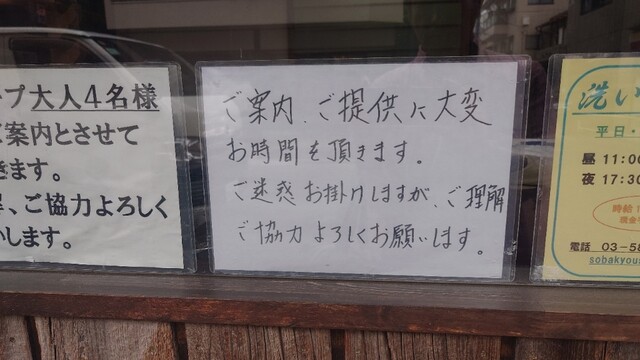 プ大人4名様
案内とさせて
きます。
、ご協力よろしく
します。
ご案内、ご提供に大変
お時間を頂きます。
ご迷惑お掛けしますが、ご理解
ご協力よろしくお願いします。
洗い
平日・
昼 11:00
夜 17:30
時給
電話 03-58
sobakyou